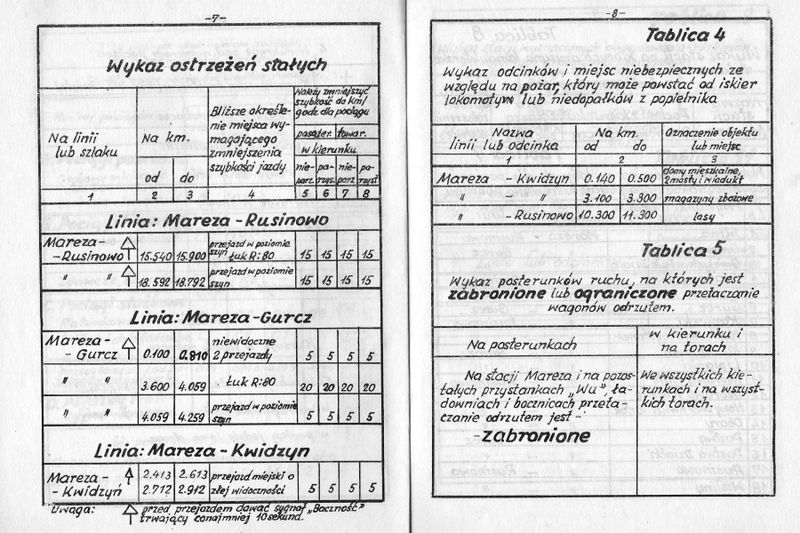 -7-
Wykaz ostrzeżeń stałych
Na linii
lub szlaku
Na km.
od do
Bliższe określe-
nie miejsca wy-
magającego
zmniejszenia
szybkości jazdy
Należy zmniejszyć
szybkość do km/
godz. dla pociągu
pasażer. towar.
w kierunku
nie- pa- nie- pa-
parz. rzys. parz. rzyst
1 2 3 4 5 6 7 8
Linia: Mareza - Rusinowo
Mareza-
-Rusinowo 15.540 15.900 przejazd w poziomie
szyn Łuk R:80 15 15 15 15
" " 18.592 18.792 przejazd w poziomie
szyn 15 15 15 15
Linia: Mareza-Gurcz
Mareza-
- Gurcz 0.100 0.810 niewidoczne
2 przejazdy 5 5 5 5
" " 3.600 4.059 Łuk R:80 20 20 20 20
" " 4.059 4.259 przejazd w poziomie
szyn 5 5 5 5
Linia: Mareza - Kwidzyn
Mareza- 2.413 2.613 przejazd miejski o
- Kwidzyń 2.712 2.912 złej widoczności 5 5 5 5
Uwaga: przed przejazdem dawać sygnał „Baczność”
trwający conajmniej 10 sekund.
-8-
Tablica 4
Wykaz odcinków i miejsc niebezpiecznych ze
względu na pożar, który może powstać od iskier
lokomotyw lub niedopałków z popielnika
Nazwa
linii lub odcinka
Na km
od do
Oznaczenie objektu
lub miejsc
1 2 3
Mareza - Kwidzyn 0.140 0.500 domy mieszkalne,
2 mosty i wiadukt
" - " 3.100 3.300 magazyny zbożowe
" - Rusinowo 10.300 11.300 lasy
Tablica 5
Wykaz posterunków ruchu, na których jest
zabronione lub ograniczone przetaczanie
wagonów odrzutem.
Na posterunkach
w kierunku i
na torach
Na stacji Mareza i na pozos-
tałych przystankach „Wu”, ła-
downiach i bocznicach przeta-
czanie odrzutem jest -
-zabronione
We wszystkich kie-
runkach i na wszyst-
kich torach.